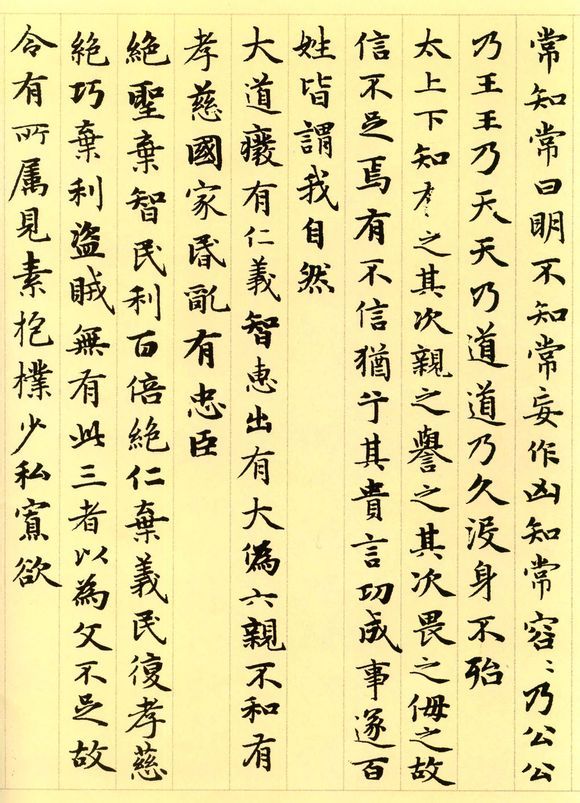 常知常曰明不知常妄作凶知常容〻乃公公
乃王王乃天天乃道道乃久没身不殆
太上下知有之其次親之譽之其次畏之侮之故
信不足焉有不信猶乎其貴言功成事遂百
姓皆謂我自然
大道癈有仁義智惠出有大偽六親不和有
孝慈國家昏亂有忠臣
絕聖棄智民利百倍絕仁棄義民復孝慈
絕巧棄利盜賊無有此三者以為文不足故
令有所属見素抱樸少私寡欲